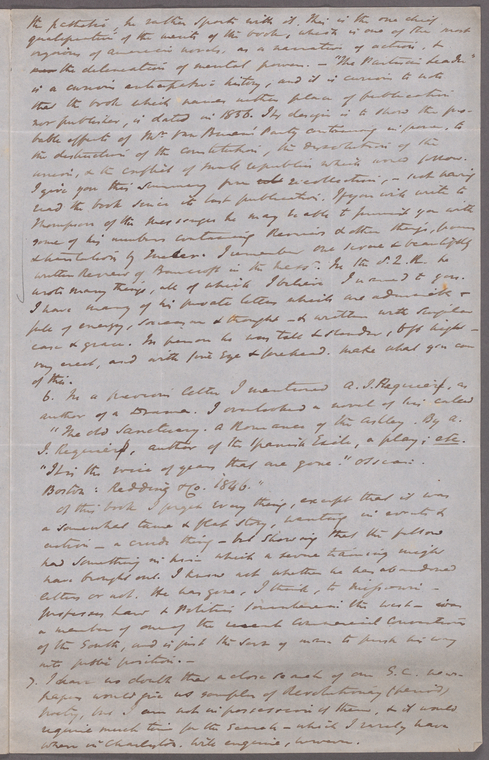 the pathetic, he rather sports with it. This is the one chief
qualification of the merits of the book, which is one of the most
vigorous of American novels, as a narrative of action, &
the delineation of mental power. — "The Partisan Leader"
is a curious anticipation history, and it is curious to note
that the book which names neither place of publication
nor publisher, is dated in 1856. Its design is to show the pro-
bable effects of Mr. Van Buren's Party continuing in power, to
the destruction of the Constitution, the dissolution of the
union, & the conflict of
I give you this summary from recollection, — not having
read the book since its last publication. If you will write to
Thompson of the Messenger he may be able to furnish you with
some of his numbers containing Reviews & other things, poems
& translations by I remember one severe & beautifully
written Review of Bancroft in the Messr. In the S.Q.R. he
wrote many things, all of which I believe I named to you.
I have many of his private letters which are admirable &
full of energy, sarcasm & thought — & written with singular
ease & grace. In person he was tall & slender, 6 ft high —
very erect, and with fine eye & forehead. Make what you can
of this.
6. In a previous letter I mentioned A. J. Requier, as
author of a Drama. I overlooked a novel of his called
"The old Sanctuary. A Romance of the Ashley. By A.
J. Requier, author of the Spanish Exile, a play; etc.
"It is the voice of years that are gone!" Ossian.
Boston: Redding & Co. 1846."
Of this book I forget every thing, except that it was
a somewhat tame & flat story, wanting in events &
action — a crude thing — but showing that the fellow
had something in him which a severe training might
have brought out. I know not whether he has abandoned
letters or not. He has gone, I think, to Missouri —
professes Law & Politics somewhere in the west —
a member of one of the recent Commercial Conventions
of the South, and is just the sort of man to push his way
into public position. —
7. I have no doubt that a close search of our S.C. news-
papers would give us samples of Revolutionary (period)
poetry, but I am not in possession of them, & it would
require much time for the search — which I rarely have
when in Charleston. Will enquire, however.